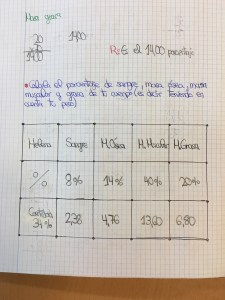 Masa grasa
20 1400
1400
R: Es el 14,00 porcentaje
• Calcula el porcentaje de sangre, masa ósea, masa
muscular y grasa de tu cuerpo (es decir teniendo en
cuenta tu peso)
Materia Sangre M.Ósea M.Muscular M.Grasa
% 8% 14% 40% 20%
Cantidad 2,38 4,76 13,60 6,80
34%